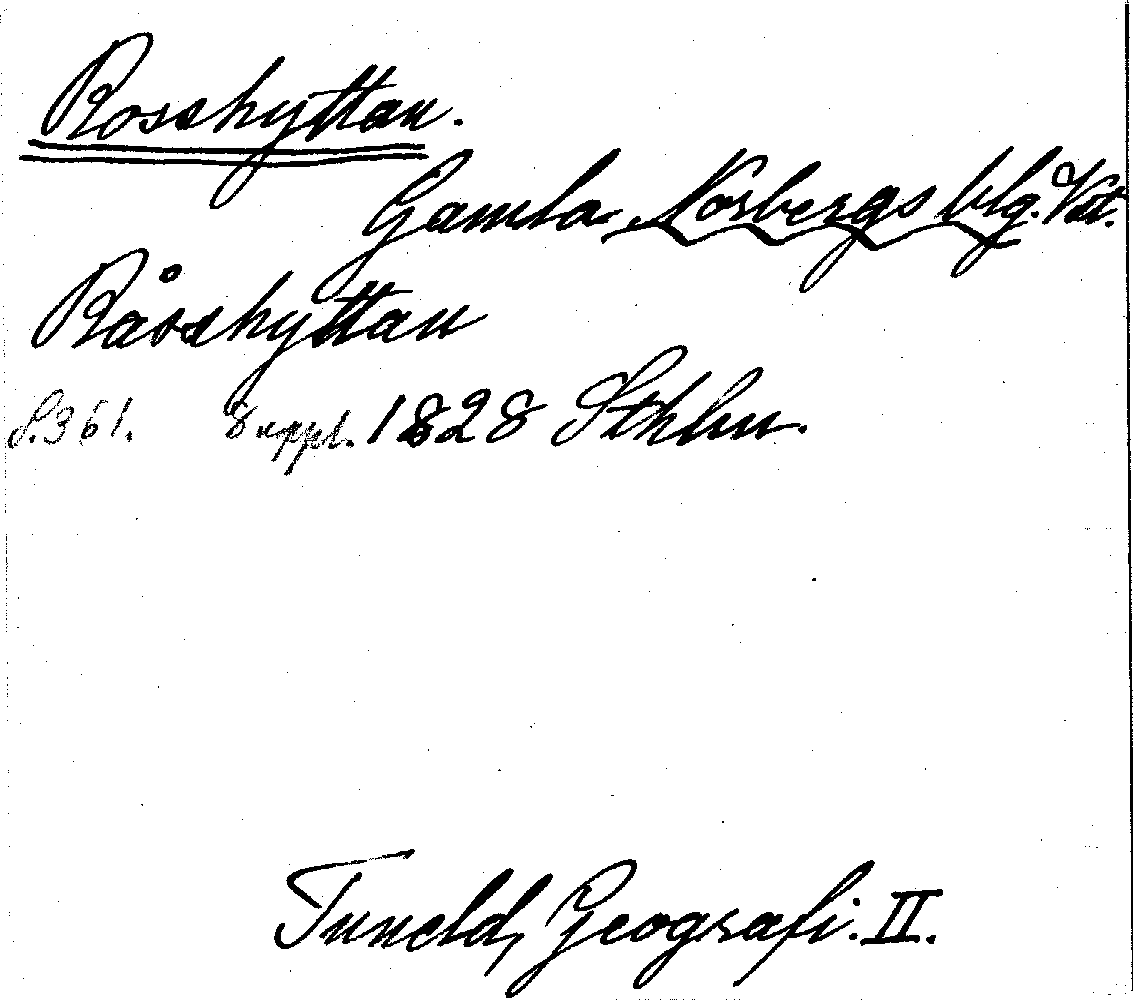 Rosshyttan.
Gamla Norbergs blg. Vstl.
Råsshyttan
S. 361. Suppl. 1828 Sthlm.
Tuneld, Geografi. II.